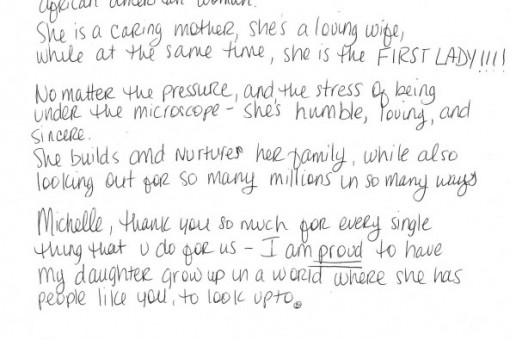 African American woman.
She is a caring mother, she's a loving wife,
while at the same time, she is the FIRST LADY!!!!
No matter the pressure, and the stress of being
under the microscope - she's humble, loving, and
sincere.
She builds and nurtures her family, while also
looking out for so many millions in so many ways
Michelle, thank you so much for every single
thing that u do for us - I am proud to have
my daughter grow up in a world where she has
people like you, to look up to.